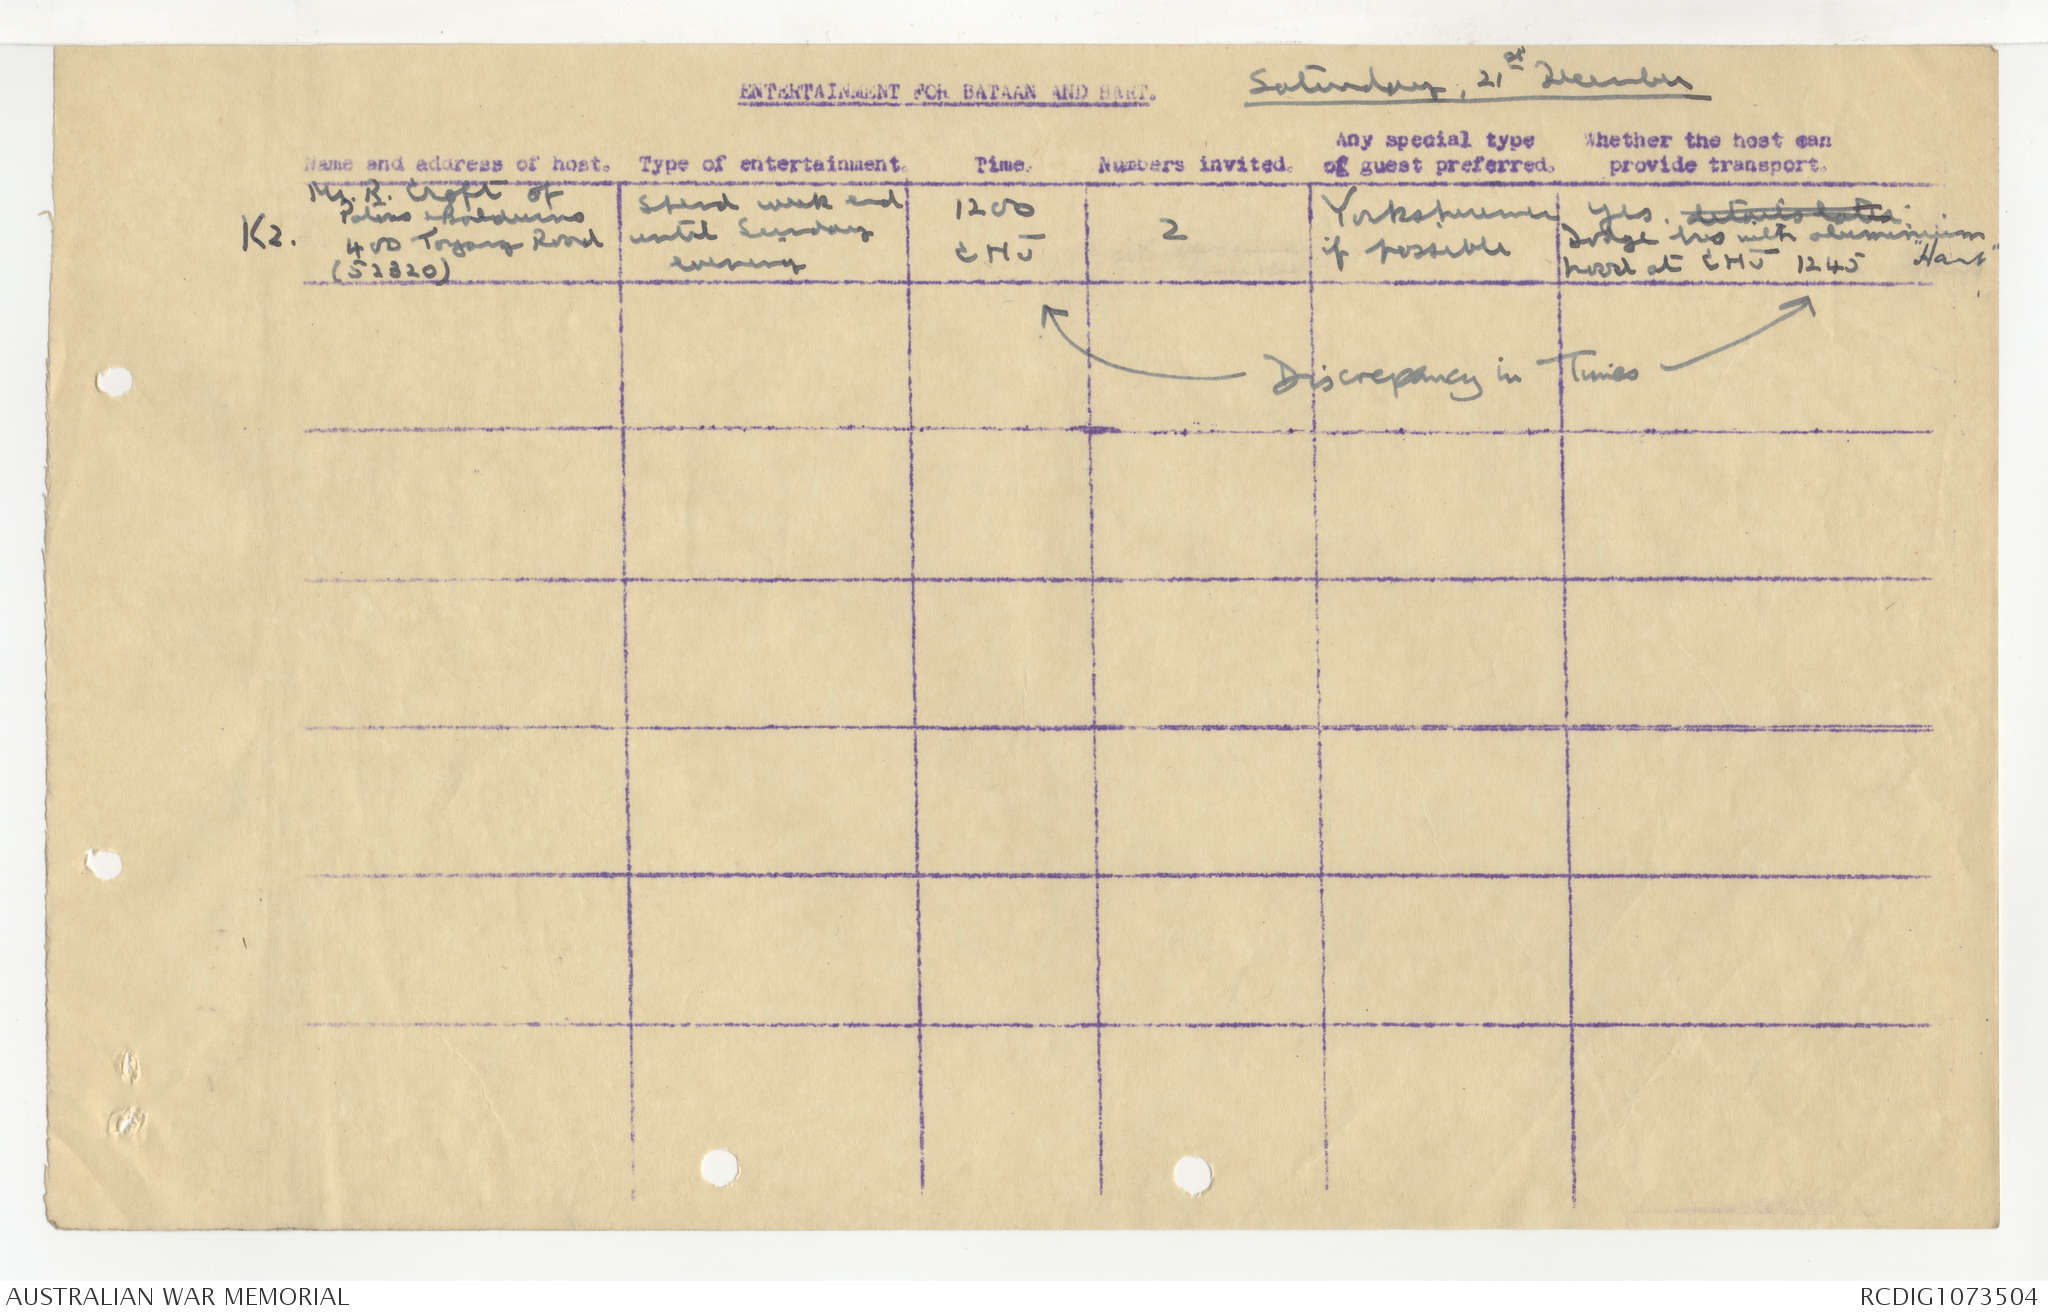 ENTERTAINMENT FOR BATAAN AND HART.
Saturday, 21st December
Name and address of host.
Type of entertainment.
Time.
Numbers invited.
Any special type
of guest preferred.
Whether the host can
provide transport.
K2.
Mr. R. Croft of
400 Road
(52820)
Spend week end
until Sunday
evening
1200
CHJ
2
Yorkshiremen
if possible
Yes. details later.
Dodge with aluminium
hood at CHJ 1245 "Hart"
Discrepancy in Times
AUSTRALIAN WAR MEMORIAL
RCDIG1073504